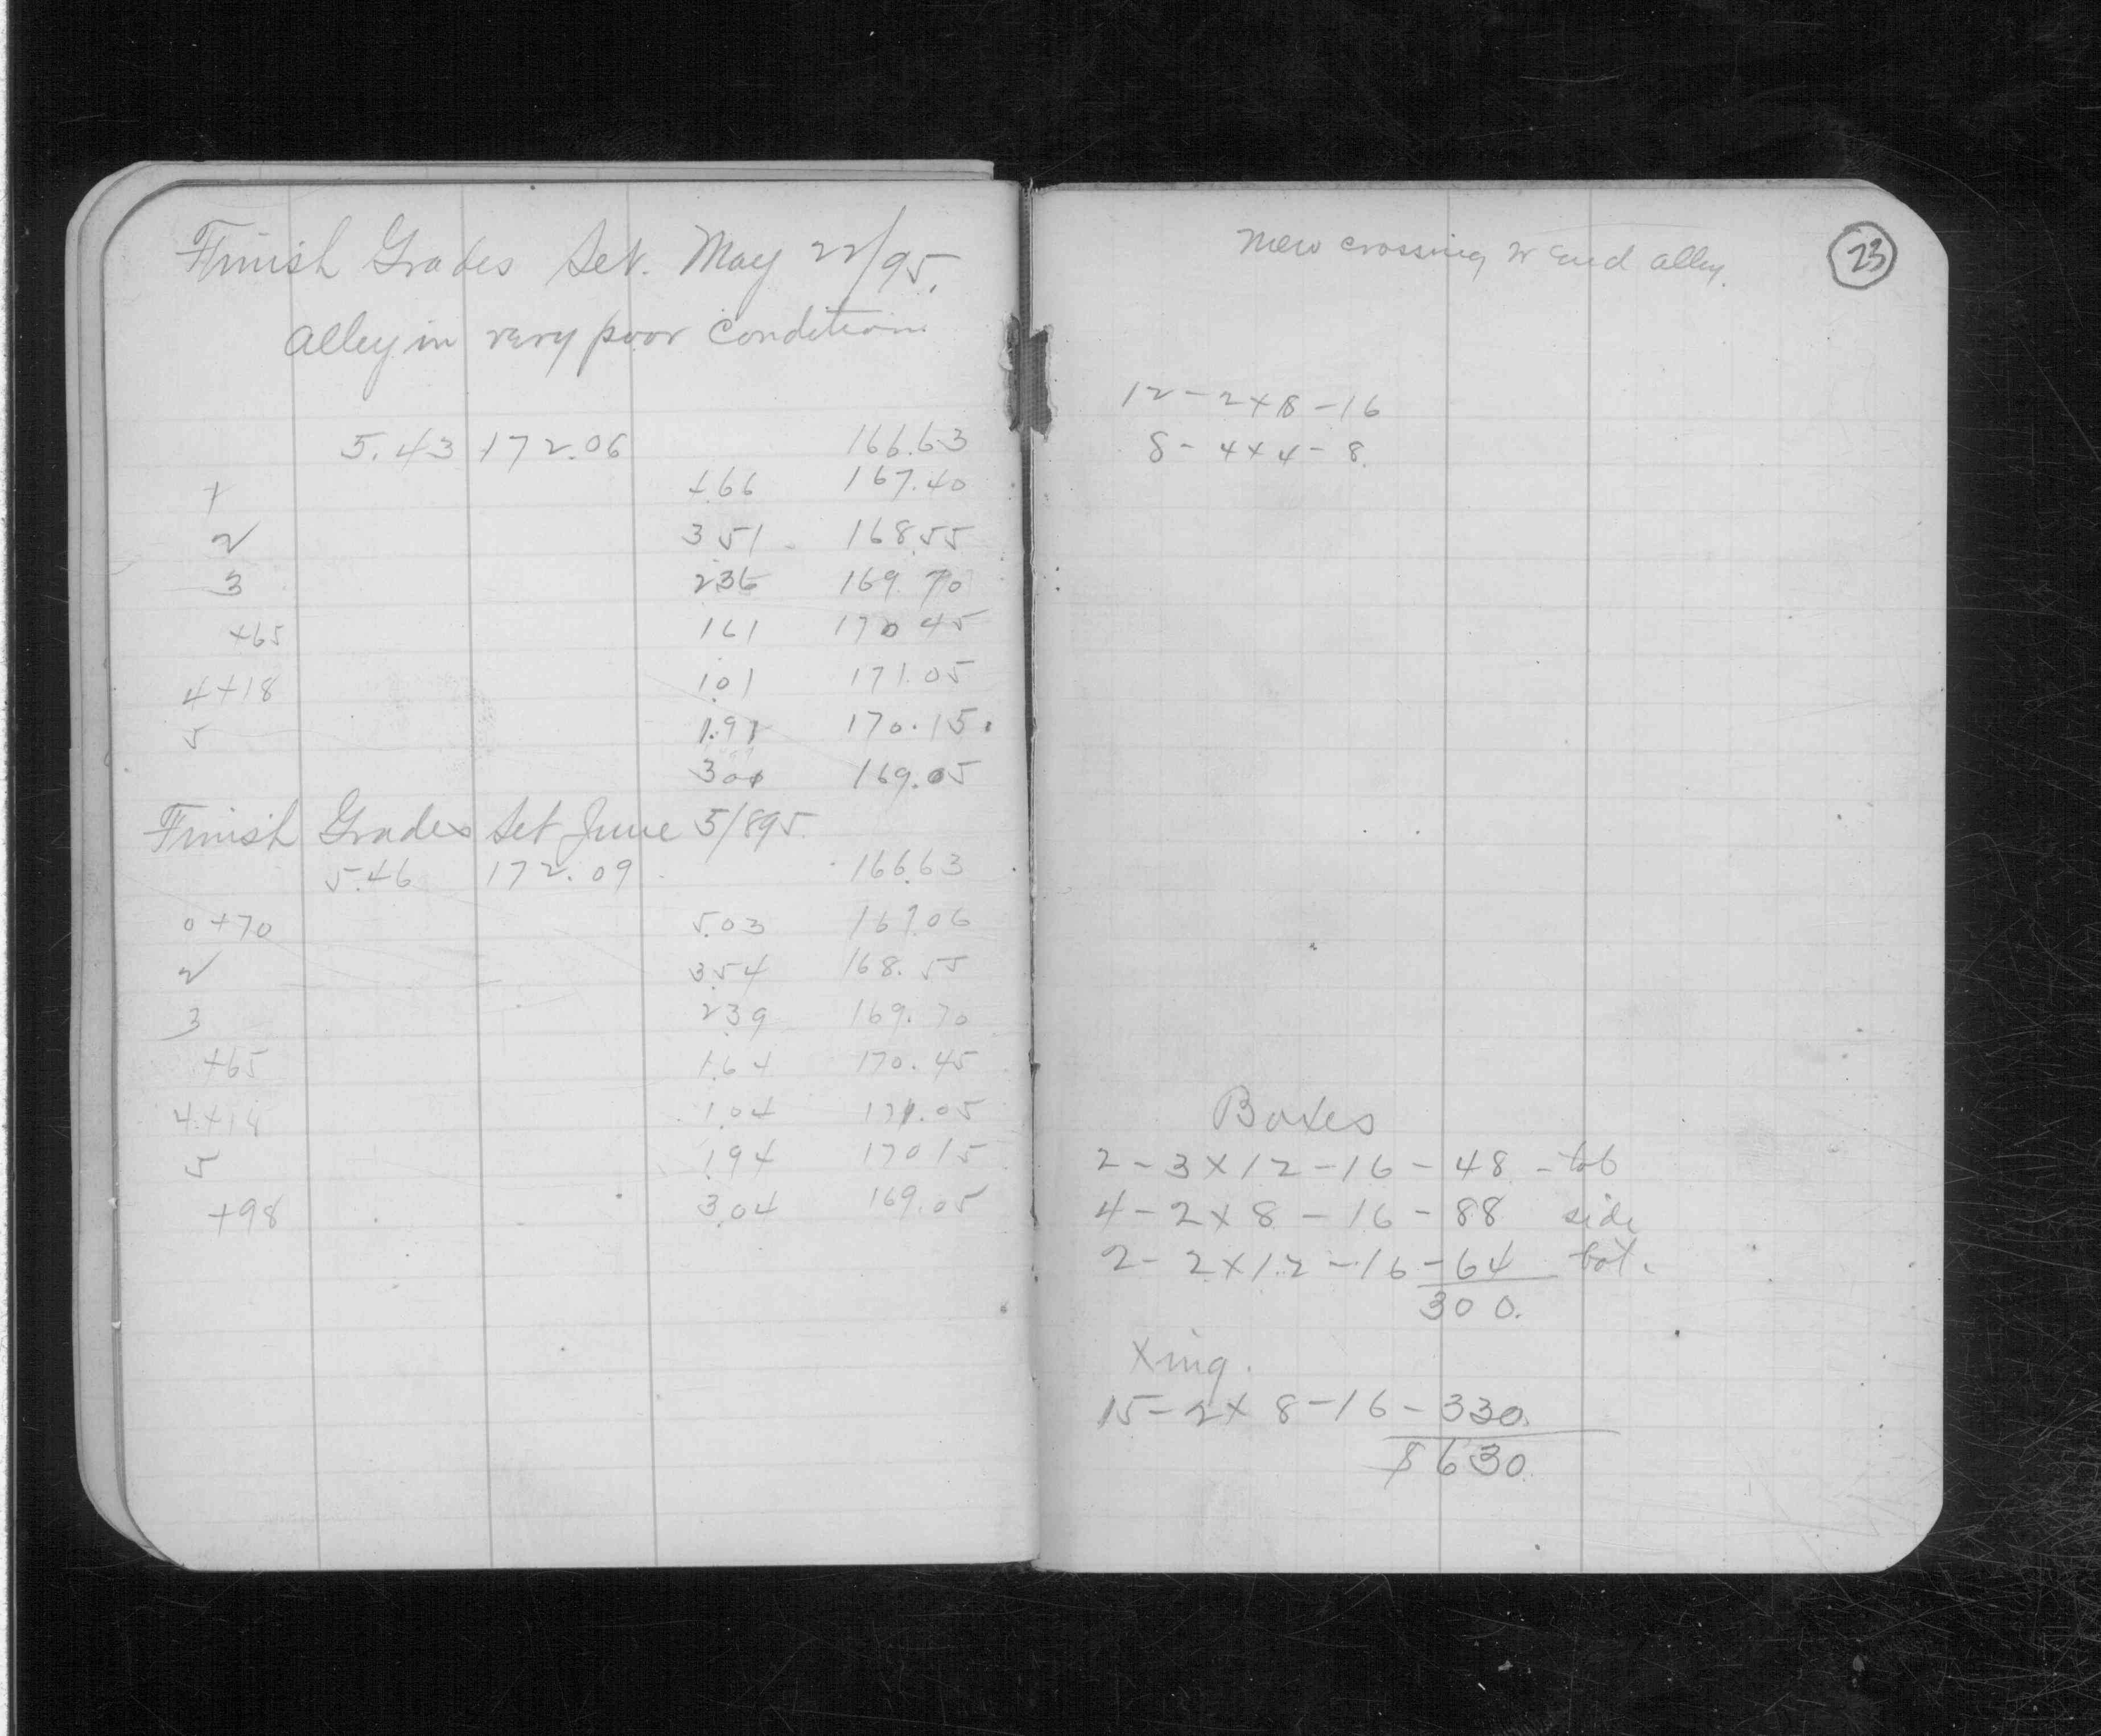 Finish Grades Set. May 22/95.
Alley in very poor condition
5.43 172.06 166.63
1 4.66 167.40
2 3 51 168.55
3 2.36 169.70
+65 1 61 170 45
4+18 1.01 171.05
5 1.91 170.15.
3 01 169.05
Finish Grades Set June 5/895.
5.46 172.09 166.63
0+70 5.03 167.06
2 3.54 168.55
3 2.39 169.70
+65 1.64 170.45
4+18 1.04 171.05
5 1.94 170 15
+98 3.04 169.05
New crossing W End alley.
23
12-2x8-16
8-4x4-8
Boxes
2-3x12-16-48-tob
4-2x8-16-88 side
2-2x12-16-64 bot.
300.
Xing.
15-2x8-16-330.
$630.